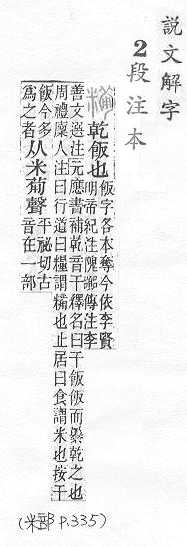 説文解字
2段注本
糒 乾飯也 飯字各本奪今依李賢
明帝紀注隗囂傳注李
善文選注元應書補乾音干釋名曰干飯飯而㬥乾之也
周禮廩人注曰行道曰糧謂糒也止居曰食謂米也按干
飯今多
爲之者
从米𤰈聲
平祕切古
音在一部
(米部 P.335)